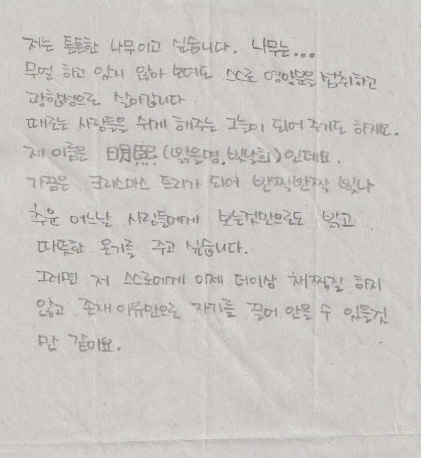 저는 튼튼한 나무이고 싶습니다. 나무는...
무얼 하고 있지 않아 보여도 스스로 영양분을 섭취하고
광합성으로 살아갑니다
때로는 사람들을 쉬게 해주는 그늘이 되어 주기도 하지요.
제 이름은 明熙 (밝을명, 빛날희) 인데요.
가끔은 크리스마스 트리가 되어 반짝반짝 빛나
추운 어느날 사람들에게 보는것만으로도 밝고
따뜻한 온기를 주고 싶습니다.
그러면 저 스스로에게 이제 더이상 채찍질 하지
않고 존재 이유만으로 자기를 끌어 안을 수 있을것
만 같아요.